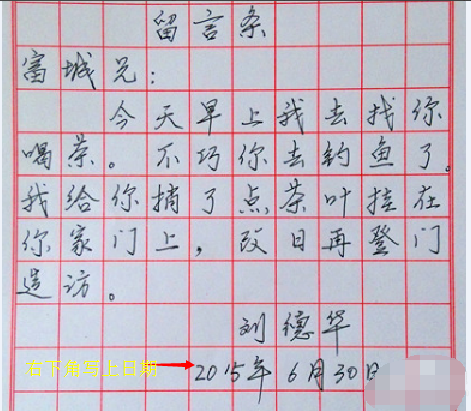 留言条
富城兄：
今天早上我去找你
喝茶。不巧你去钓鱼了。
我给你捎了点茶叶挂在
你家门上，改日再登门
造访。
刘德华
右下角写上日期
2015年6月30日